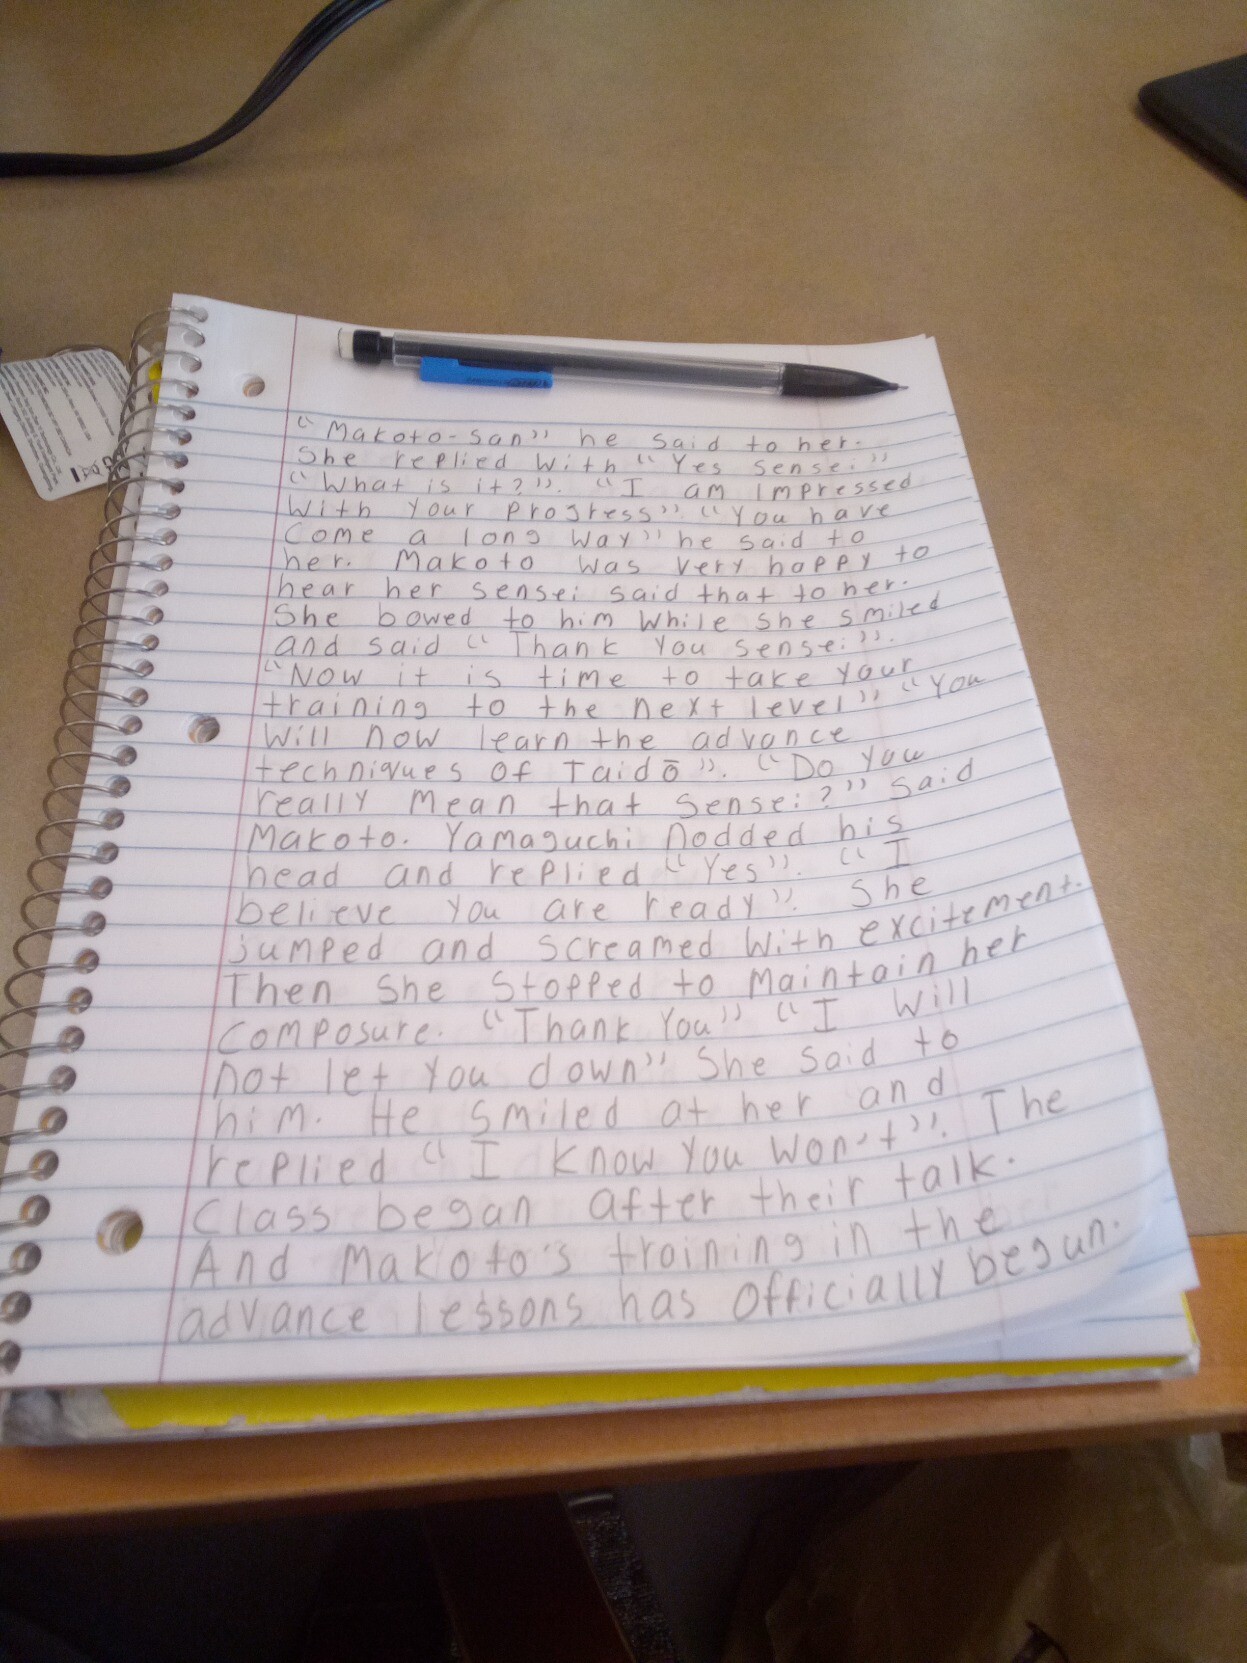 "Makoto-san" he said to her.
She replied with "Yes sensei"
"What is it?". "I am impressed
with your progress" "You have
come a long way" he said to
her. Makoto was very happy to
hear her sensei said that to her.
She bowed to him while she smiled
and said "Thank you sensei".
"Now it is time to take your
training to the next level" "You
will now learn the advance
techniques of Taidō". "Do you
really mean that sensei?" said
Makoto. Yamaguchi nodded his
head and replied "Yes". "I
believe you are ready". She
jumped and screamed with excitement.
Then she stopped to maintain her
composure. "Thank you" "I will
not let you down" She said to
him. He smiled at her and
replied "I know you won't". The
class began after their talk.
And Makoto's training in the
advance lessons has officially begun.